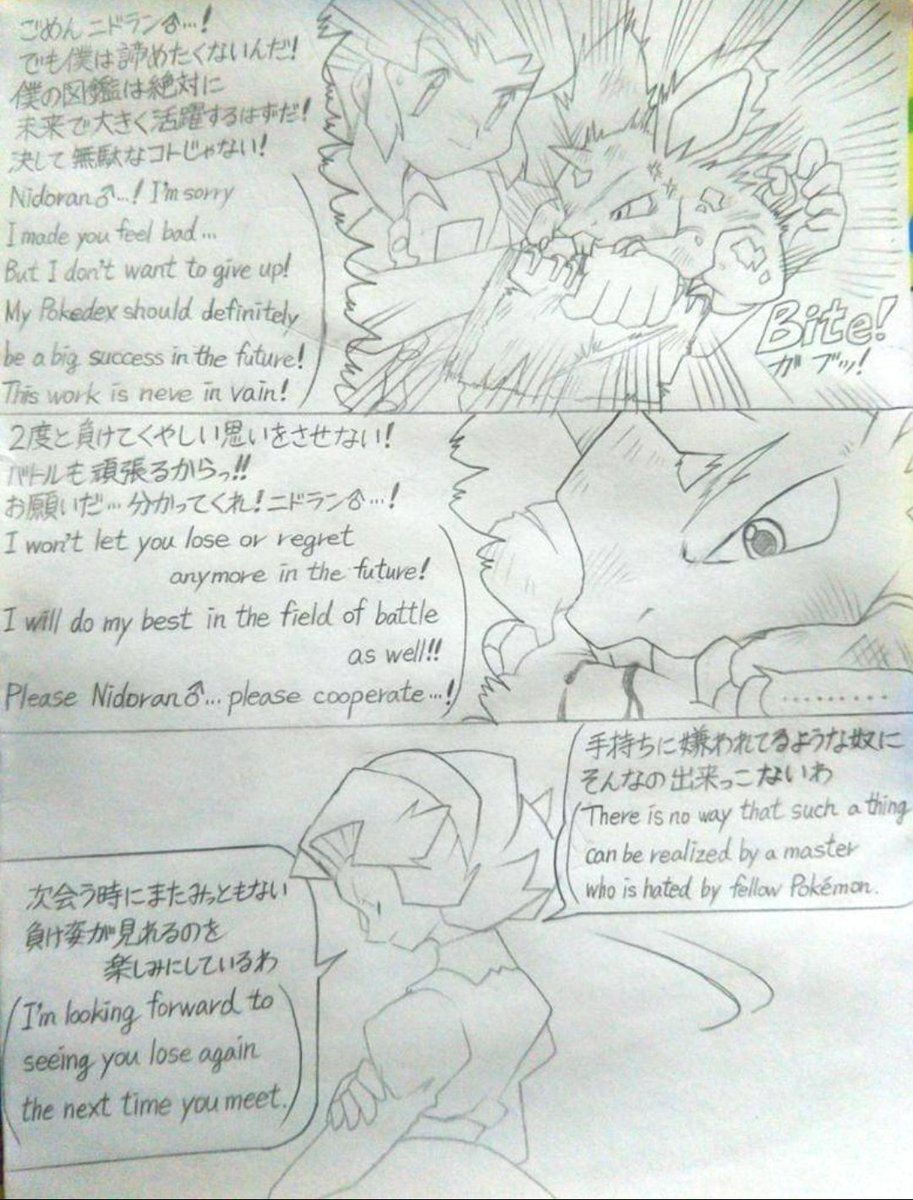 ごめん ニドラン♂…!
でも僕は諦めたくないんだ!
僕の図鑑は絶対に
未来で大きく活躍するはずだ!
決して無駄なコトじゃない!
Nidoran♂…! I'm sorry
I made you feel bad…
But I don't want to give up!
My Pokedex should definitely
be a big success in the future!
This work is neve in vain!
Bite!
ガブッ!
2度と負けてくやしい思いをさせない!
バトルも頑張るからっ!!
お願いだ…分かってくれ!ニドラン♂…!
I won't let you lose or regret
anymore in the future!
I will do my best in the field of battle
as well!!
Please Nidoran♂…please cooperate…!
………
手持ちに嫌われてるような奴に
そんなの出来っこないわ
There is no way that such a thing
can be realized by a master
who is hated by fellow Pokémon.
次会う時にまたみっともない
負け姿が見れるのを
楽しみにしているわ
(I'm looking forward to
seeing you lose again
the next time you meet.)